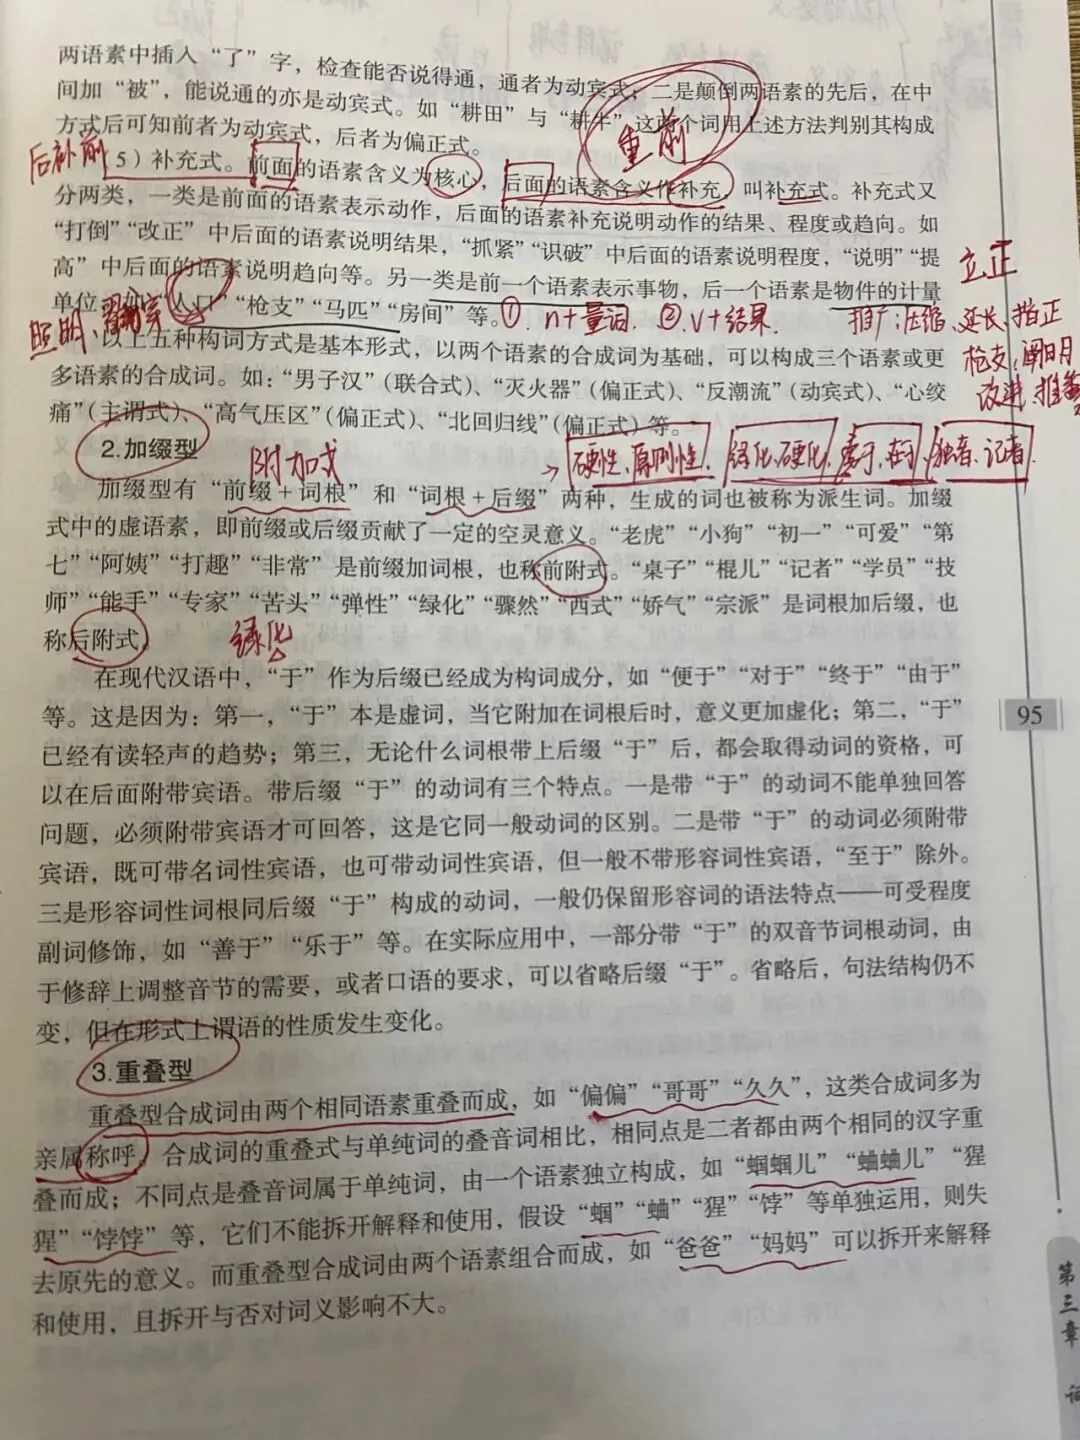 两语素中插入“了”字，检查能否说得通，通者为动宾式；二是颠倒两语素的先后，在中
间加“被”，能说通的亦是动宾式。如“耕田”与“耕牛”这两个词用上述方法判别其构成
方式后可知前者为动宾式，后者为偏正式。
重前
后补前
（5）补充式。前面的语素含义为核心，后面的语素含义作补充，叫补充式。补充式又
分两类，一类是前面的语素表示动作，后面的语素补充说明动作的结果、程度或趋向。如
“打倒”“改正”中后面的语素说明结果，“抓紧”“识破”中后面的语素说明程度，“说明”“提
高”中后面的语素说明趋向等。另一类是前一个语素表示事物，后一个语素是物件的计量
立正
单位，如“人口”“枪支”“马匹”“房间”等。
① n+量词 ② v+结果
推广；压缩、延长、指正
照明、
枪支；
改进、推
以上五种构词方式是基本形式，以两个语素的合成词为基础，可以构成三个语素或更
多语素的合成词。如：“男子汉”（联合式）、“灭火器”（偏正式）、“反潮流”（动宾式）、“心绞
痛”（主谓式）、“高气压区”（偏正式）、“北回归线”（偏正式）等。
2.加缀型
附加式
→硬性、原则性、绿化、硬化、在于、记者
加缀型有“前缀＋词根”和“词根＋后缀”两种，生成的词也被称为派生词。加缀
式中的虚语素，即前缀或后缀贡献了一定的空灵意义。“老虎”“小狗”“初一”“可爱”“第
七”“阿姨”“打趣”“非常”是前缀加词根，也称前附式。“桌子”“棍儿”“记者”“学员”“技
师”“能手”“专家”“苦头”“弹性”“绿化”“骤然”“西式”“娇气”“宗派”是词根加后缀，也
称后附式。
绿化
在现代汉语中，“于”作为后缀已经成为构词成分，如“便于”“对于”“终于”“由于”
等。这是因为：第一，“于”本是虚词，当它附加在词根后时，意义更加虚化；第二，“于”
已经有读轻声的趋势；第三，无论什么词根带上后缀“于”后，都会取得动词的资格，可
以在后面附带宾语。带后缀“于”的动词有三个特点。一是带“于”的动词不能单独回答
问题，必须附带宾语才可回答，这是它同一般动词的区别。二是带“于”的动词必须附带
宾语，既可带名词性宾语，也可带动词性宾语，但一般不带形容词性宾语，“至于”除外。
三是形容词性词根同后缀“于”构成的动词，一般仍保留形容词的语法特点——可受程度
副词修饰，如“善于”“乐于”等。在实际应用中，一部分带“于”的双音节词根动词，由
于修辞上调整音节的需要，或者口语的要求，可以省略后缀“于”。省略后，句法结构仍不
变，但在形式上谓语的性质发生变化。
3.重叠型
重叠型合成词由两个相同语素重叠而成，如“偏偏”“哥哥”“久久”，这类合成词多为
亲属称呼。合成词的重叠式与单纯词的叠音词相比，相同点是二者都由两个相同的汉字重
叠而成；不同点是叠音词属于单纯词，由一个语素独立构成，如“蝈蝈儿”“蛐蛐儿”“猩
猩”“饽饽”等，它们不能拆开解释和使用，假设“蝈”“蛐”“猩”“饽”等单独运用，则失
去原先的意义。而重叠型合成词由两个语素组合而成，如“爸爸”“妈妈”可以拆开来解释
和使用，且拆开与否对词义影响不大。
95
第三章 词